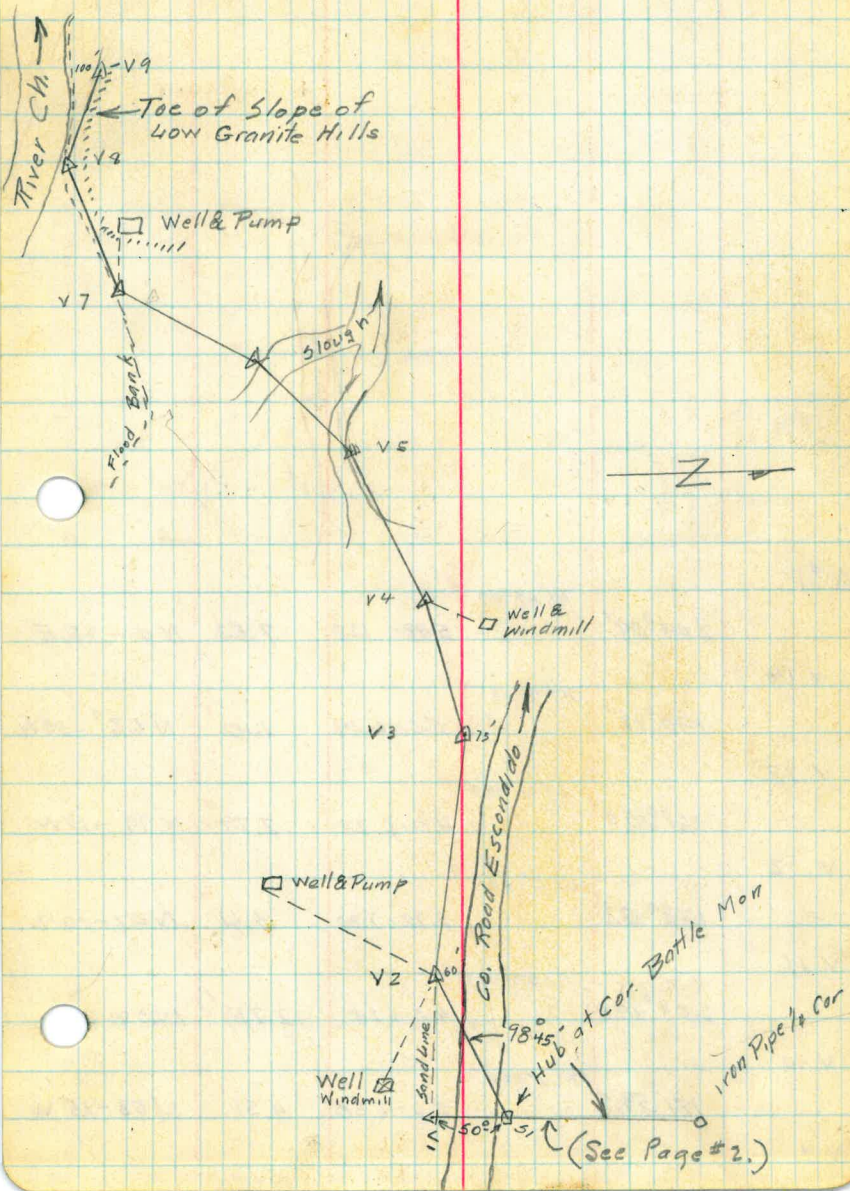 River Ch.
100'
V9
Toe of Slope of
Low Granite Hills
V8
Well & Pump
V7
Slough
Flood Bank
V5
Z
V4
Well &
Windmill
V3
75'
Co. Road Escondido
Well & Pump
V2
60'
98° 45'
Hub at Cor. Battle Mon
Iron Pipe ¼ Cor
Sand Line
Well
Windmill
V1
50°
S1
(See Page #2.)